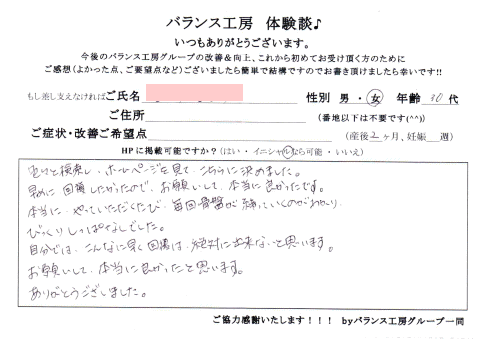 バランス工房 体験談♪
いつもありがとうございます。
今後のバランス工房グループの改善＆向上、これから初めてお受け頂く方のために
ご感想（よかった点、ご要望点など）ございましたら簡単で結構ですのでお書き頂けましたら幸いです!!
もし差し支えなければご氏名 性別 男・女 年齢 30代
ご住所 （番地以下は不要です(^^)）
ご症状・改善ご希望点 （産後2ヶ月、妊娠 週）
HPに掲載可能ですか？（はい・イニシャルなら可能・いいえ）
検索し、ホームページを見て、こちらに決めました。
早めに回復したかったので、お願いして、本当に良かったです。
本当に、やっていただくたび、毎回骨盤が締っていくのがわかり、
びっくりしっぱなしでした。
自分では、こんなに早く回復は、絶対に出来ないと思います。
お願いして、本当に良かったと思います。
ありがとうございました。
ご協力感謝いたします！！！ byバランス工房グループ一同